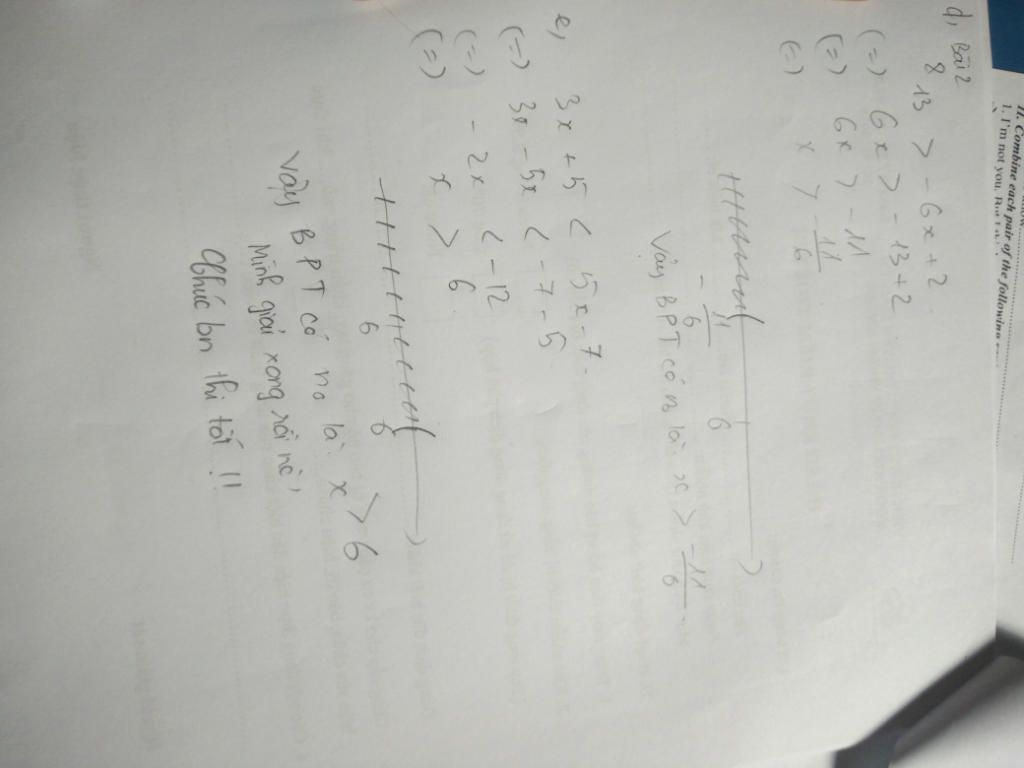 II. Combine each pair of the following
1. I'm not you.
Bài 2
d, 8
13 > -6x + 2
(=) 6x > -13 + 2
(=) 6x > -11
(=) x > -11/6
-11/6
Vậy BPT có no là x > -11/6
e, 3x + 5 < 5x - 7
(=) 3x - 5x < -7 - 5
(=) -2x < -12
(=) x > 6
6
6
Vậy BPT có no là x > 6
Mình giải xong rồi nè,
Chúc bạn thi tốt !!